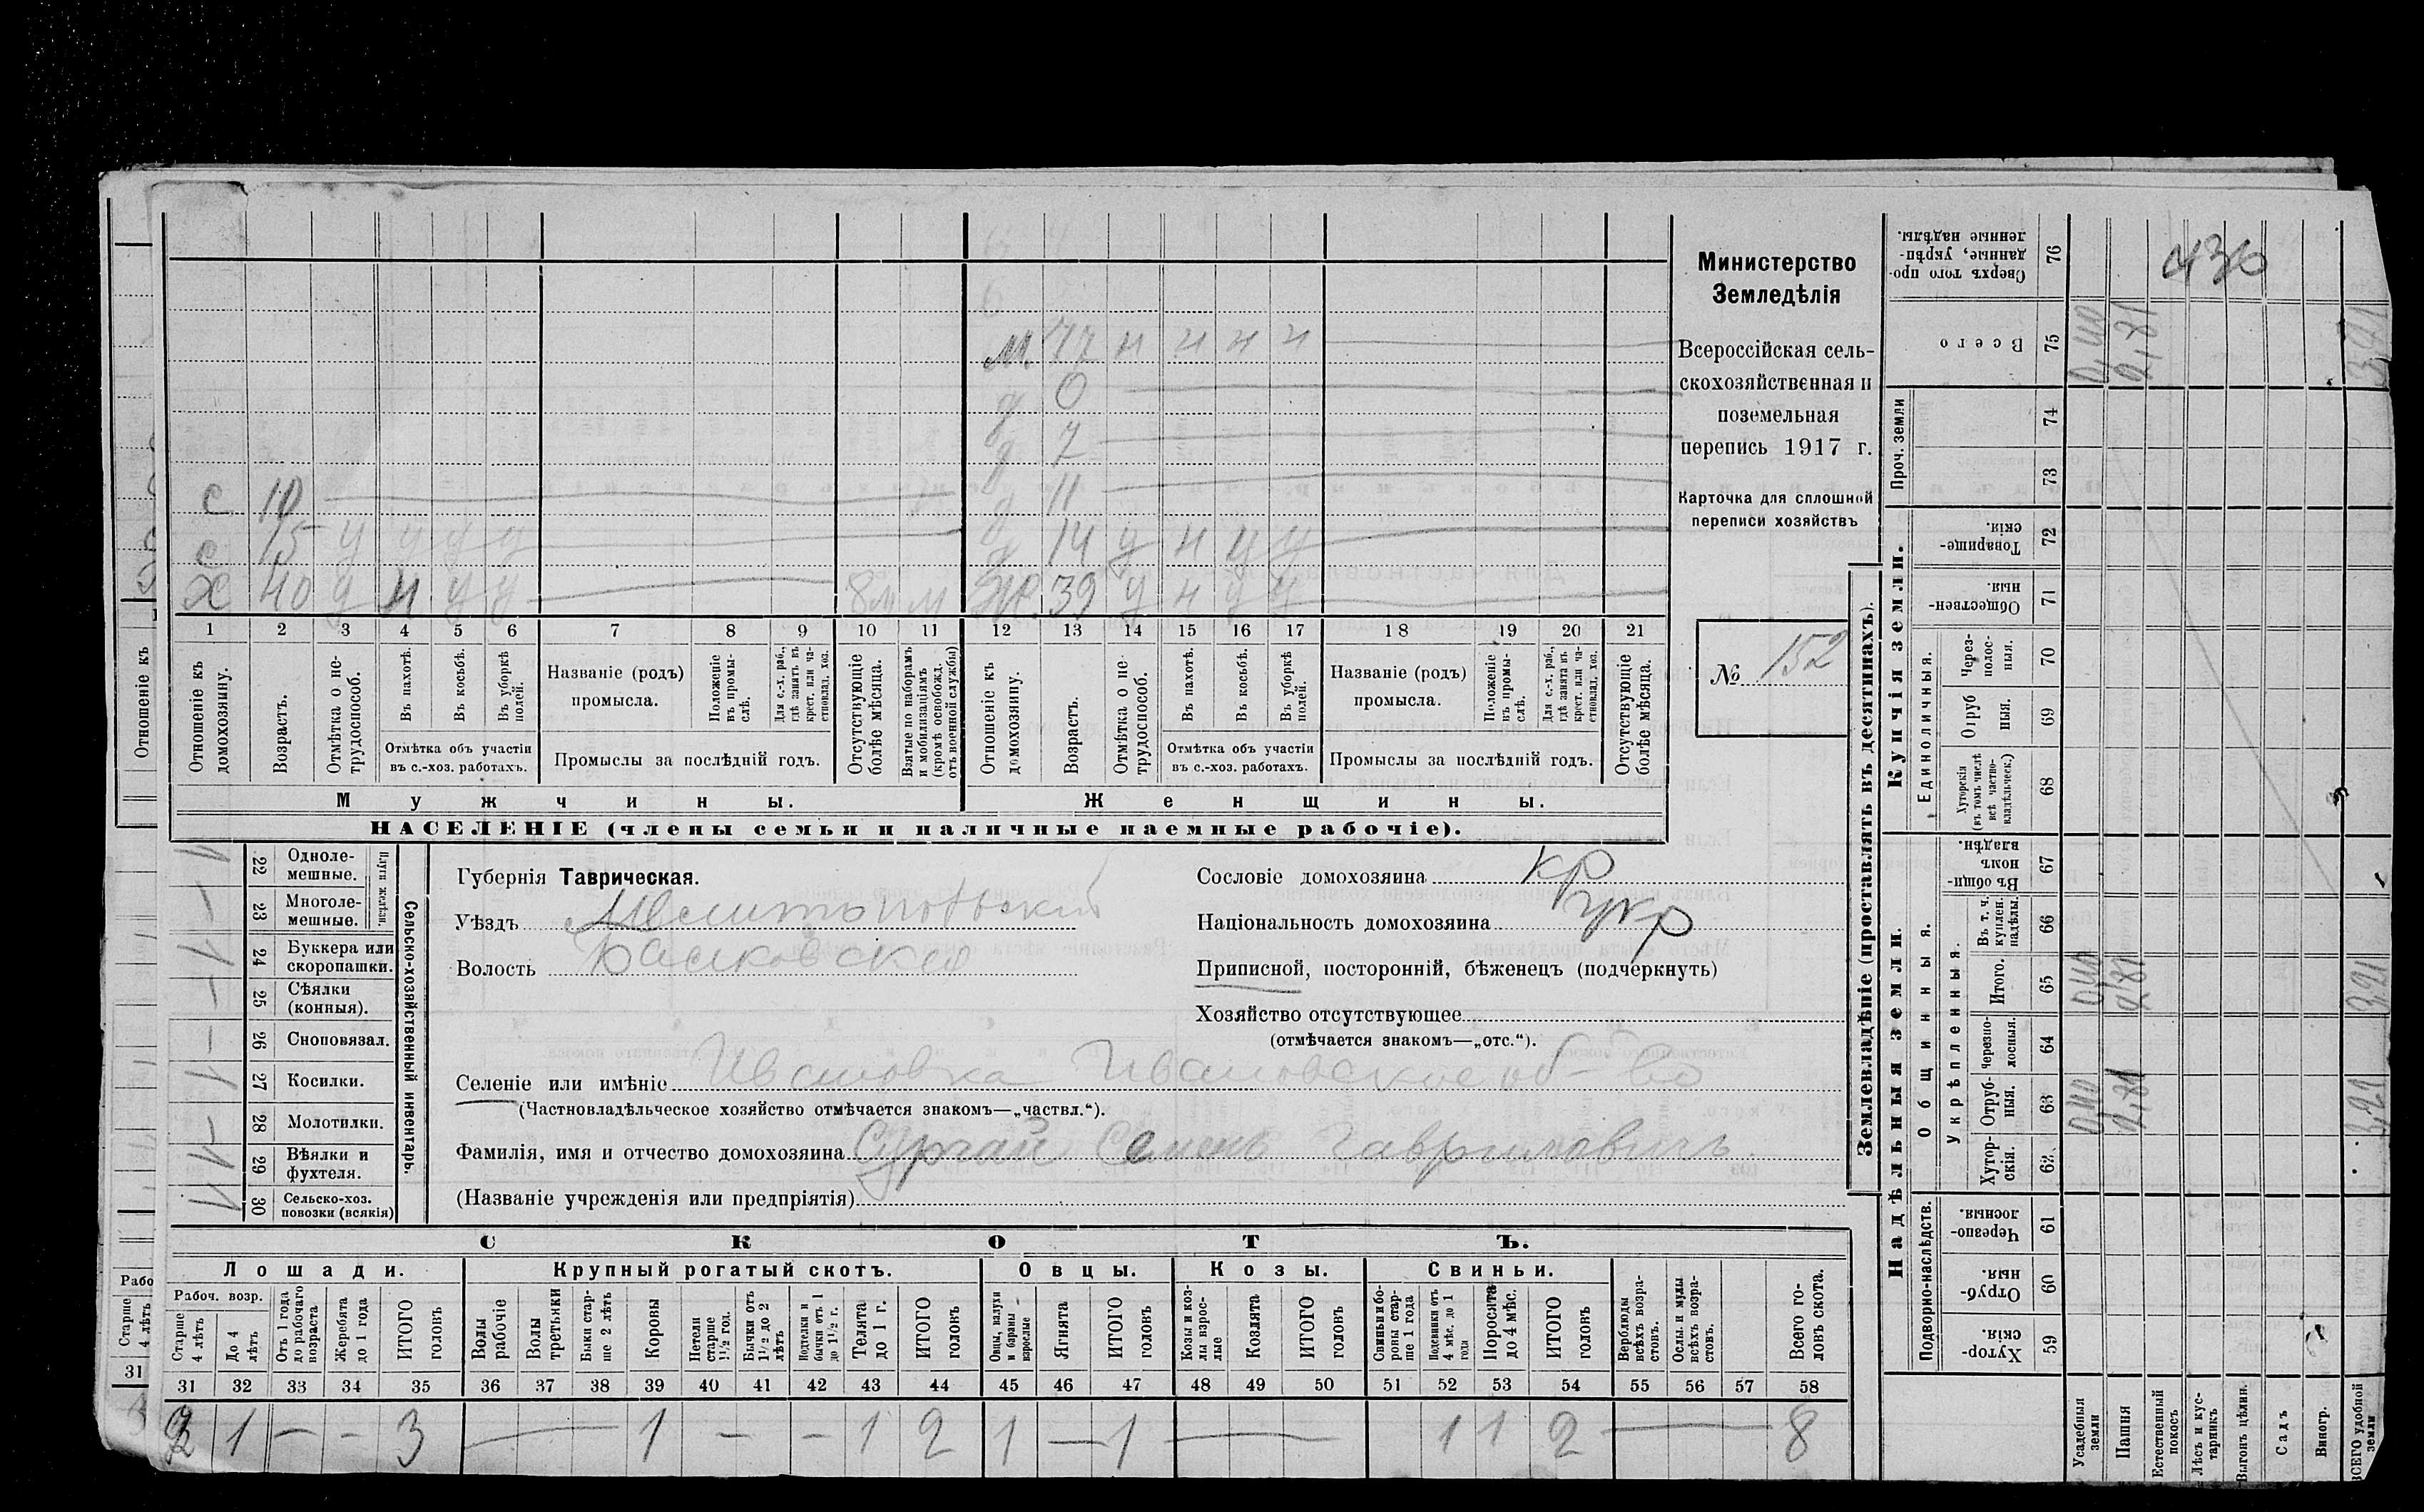 Министерство
Земледѣлія
Всероссійская сель-
скохозяйственная и
поземельная
перепись 1917 г.
Карточка для сплошной
переписи хозяйствъ
№ 152
М 72 н н н н
д 0
д 7
с 10 д 11
с 15 у у у у д 14 у н у у
Х 40 у н у у 8м м Ж. 39 у н у у
1 2 3 4 5 6 7 8 9 10 11 12 13 14 15 16 17 18 19 20 21
Отношеніе къ домохозяину.
Возрастъ.
Отмѣтка о не-трудоспособ.
Въ пахотѣ.
Въ косьбѣ.
Въ уборкѣ полей.
Отмѣтка объ участіи
въ с.-хоз. работахъ.
Названіе (родъ)
промысла.
Положеніе въ промы-слѣ.
Для с.-х. раб., гдѣ занятъ въ крест. или ча-стновлад. хоз.
Промыслы за послѣдній годъ.
Отсутствующіе болѣе мѣсяца.
Взятые по наборамъ и мобилизаціямъ (кромѣ освобожд. отъ военной службы)
Отношеніе къ домохозяину.
Возрастъ.
Отмѣтка о не трудоспособ.
Въ пахотѣ.
Въ косьбѣ.
Въ уборкѣ полей.
Отмѣтка объ участіи
въ с.-хоз. работахъ.
Названіе (родъ)
промысла.
Положеніе въ промы-слѣ.
Для с.-х. раб., гдѣ занята въ крест. или ча-стновлад. хоз.
Промыслы за послѣдній годъ.
Отсутствующіе болѣе мѣсяца.
Мужчины.
Женщины.
НАСЕЛЕНІЕ (члены семьи и наличные наемные рабочіе).
Сельско-хозяйственный инвентарь.
Плуги желѣзн.
22 Одноле-мешные.
23 Многоле-мешные.
24 Буккера или скоропашки.
25 Сѣялки (конныя).
26 Сноповязал.
27 Косилки.
28 Молотилки.
29 Вѣялки и фухтеля.
30 Сельско-хоз. повозки (всякія)
Губернія Таврическая.
Уѣздъ Мелитопольскій
Волость
Сословіе домохозяина кр
Національность домохозяина укр
Приписной, посторонній, бѣженецъ (подчеркнуть)
Хозяйство отсутствующее
(отмѣчается знакомъ—„отс.“).
Селеніе или имѣніе Ивановка Ивановское об-во
(Частновладѣльческое хозяйство отмѣчается знакомъ—„частвл.“).
Фамилія, имя и отчество домохозяина Сургай Семенъ Гавриловичъ.
(Названіе учрежденія или предпріятія)
СКОТЪ.
Лошади. Крупный рогатый скотъ. Овцы. Козы. Свиньи.
Рабоч. возр.
Старше 4 лѣтъ
До 4 лѣтъ
Отъ 1 года до рабочаго возраста
Жеребята до 1 года
ИТОГО головъ
Волы рабочіе
Волы третьяки
Быки стар-ше 2 лѣтъ
Коровы
Нетели старше 1½ год.
Бычки отъ 1½ до 2 лѣтъ
Подтелки и бычки отъ 1 до 1½ г.
Телята до 1 г.
ИТОГО головъ
Овцы, валухи и бараны взрослые
Ягнята
ИТОГО головъ
Козы и коз-лы взрос-лые
Козлята
ИТОГО головъ
Свиньи и бо-ровы стар-ше 1 года
Подсвинки отъ 4 мѣс. до 1 года
Поросята до 4 мѣс.
ИТОГО головъ
Верблюды всѣхъ возра-стовъ.
Ослы и мулы всѣхъ возра-стовъ.
Всего го-ловъ скота.
31 32 33 34 35 36 37 38 39 40 41 42 43 44 45 46 47 48 49 50 51 52 53 54 55 56 57 58
2 1 — - 3 — 1 - - 1 2 1 — 1 — 1 1 2 — 8
Землевладѣніе (проставлять въ десятинахъ).
Надѣльныя земли.
Купчія земли.
Проч. земли
Подворно-наслѣдств.
Общинныя.
Укрѣпленныя.
Единоличныя.
76 Сверхъ того про-данные, укрѣп-ленные надѣлы.
75 Всего
74
73
72 Товарище-скія.
71 Обществен-ныя.
70 Через-полос-ныя.
69 Отруб ныя.
68 Хуторскія (въ томъ числѣ всѣ частно-владѣльческ.)
67 Въ общи-номъ владѣн.
66 Въ т. ч. куплен. надѣлы.
65 Итого.
64 черезпо-лосныя.
63 Отруб-ныя.
62 Хутор-скія.
61 Черезпо-лосныя.
60 Отруб-ныя.
59 Хутор-скія.
Усадебныя земли
Пашня
Естественный покосъ
Лѣсъ и кус-тарникъ
Выгонъ цѣлин.
Садъ
Виногр.
ВСЕГО удобной земли
0,40 2,81 3,21
0,40 2,81 3,21
0,40 2,81 3,21
Отношеніе къ
Старше 4 лѣтъ
31